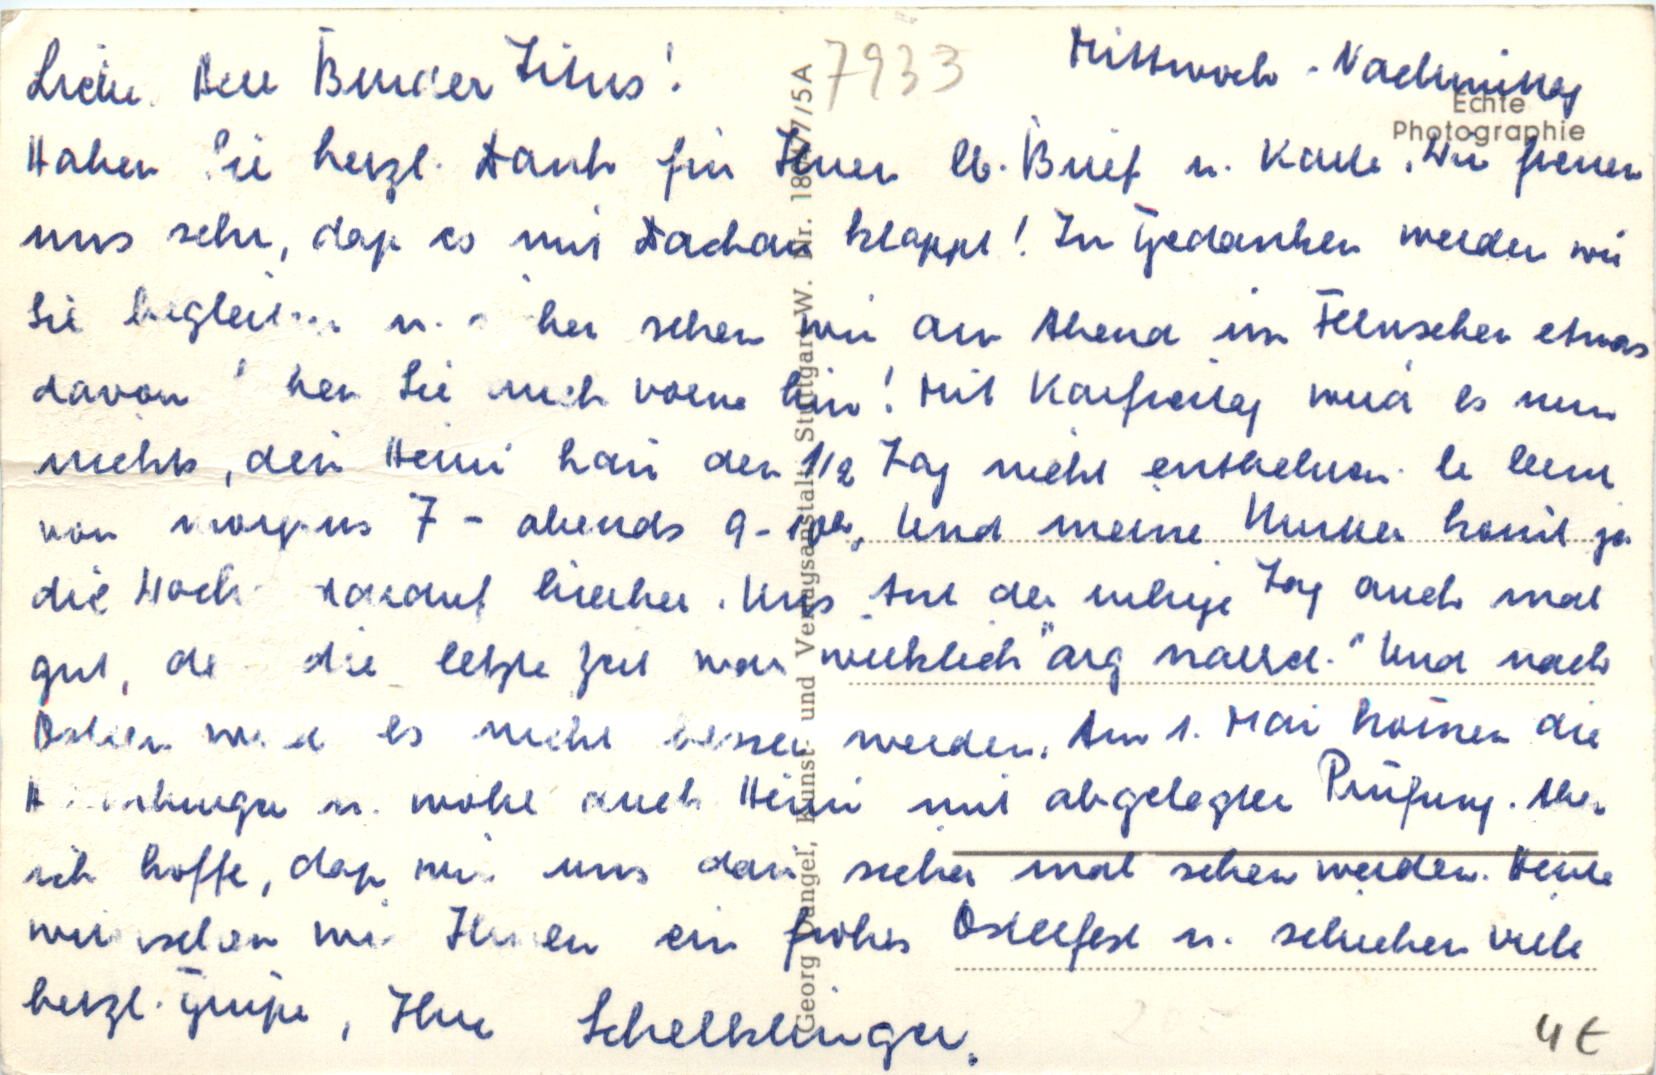 Mittwoch - Nachmittag
Lieber Bruder Titus!
7933
Echte
Photographie
Haben Sie herzl. Dank für Ihren lb. Brief u. Karte. Wir freuen
uns sehr, daß es mit Dachau klappt! In Gedanken werden wir
Sie begleiten u. sehen wir am Abend im Fernsehen etwas
davon Sie sich vorne hin! Mit Karfreitag wird es nun
nichts, den Heini kan den 1/2 Tag nicht entbehren. Er lernt
von morgens 7 - abends 9-10h. Und meine Mutter komt ja
die Woche darauf hierher. Uns tut der ruhige Tag auch mal
gut, de die letzte Zeit war wirklich "arg narret." Und nach
Ostern wird es nicht besser werden. Am 1. Mai komen die
u. wohl auch Heini mit abgelegter Prüfung. Aber
ich hoffe, daß wir uns dan sicher mal sehen werden. Heute
wünschen wir Ihnen ein frohes Osterfest u. schicken viele
herzl. Grüße, Ihre Schelklinger.
Georg Stuttgart W. Nr.
Kunst- und Verlagsanstalt
4 €